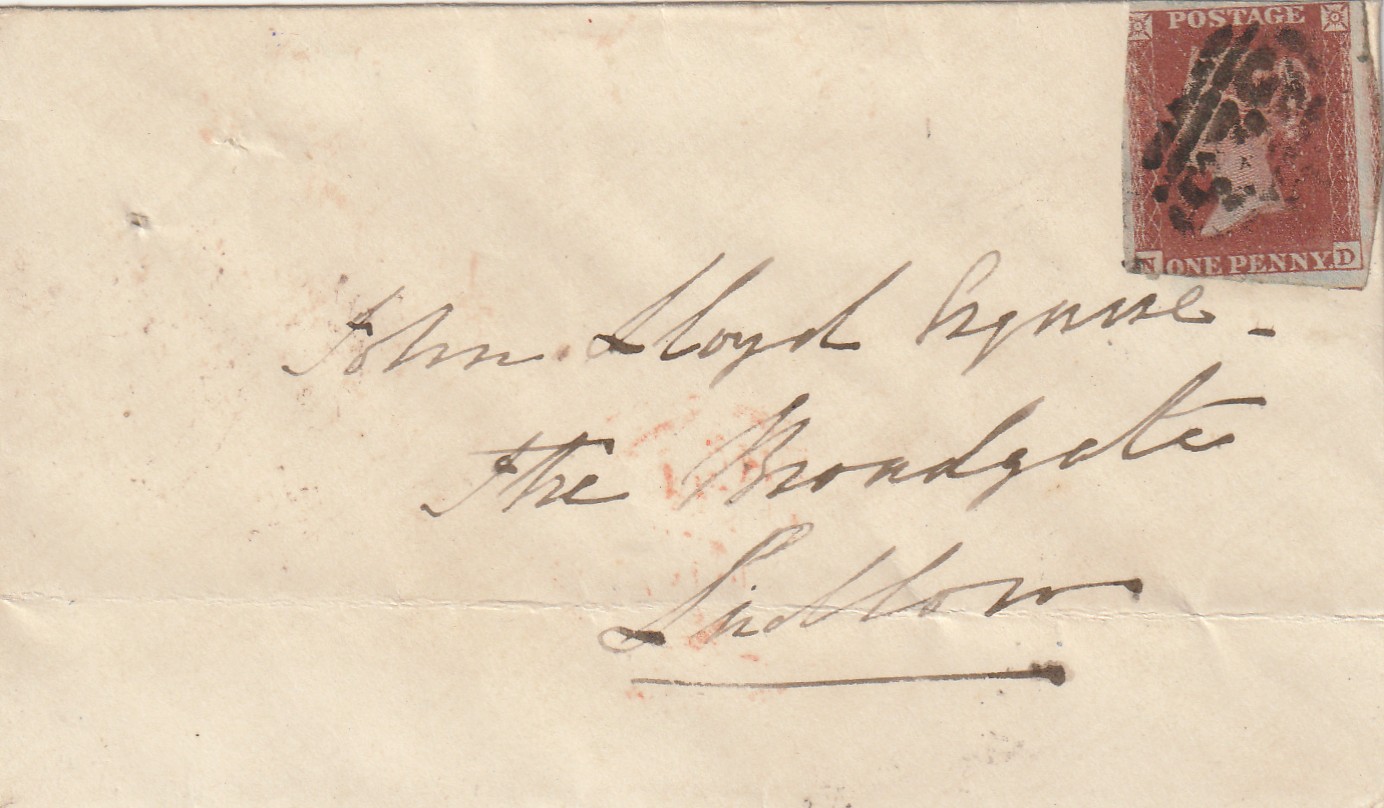 POSTAGE
N ONE PENNY. D
John Lloyd Esquire -
The Broadgate
Ludlow